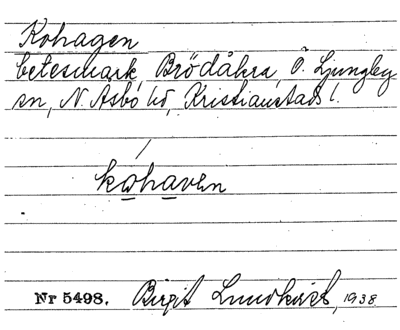 Kohagen
betesmark, Brödåkra, Ö. Ljungby
sn, N. Åsbo hd, Kristianstads l.
kohaven
Nr 5498. Birgit Lundkvist, 1938